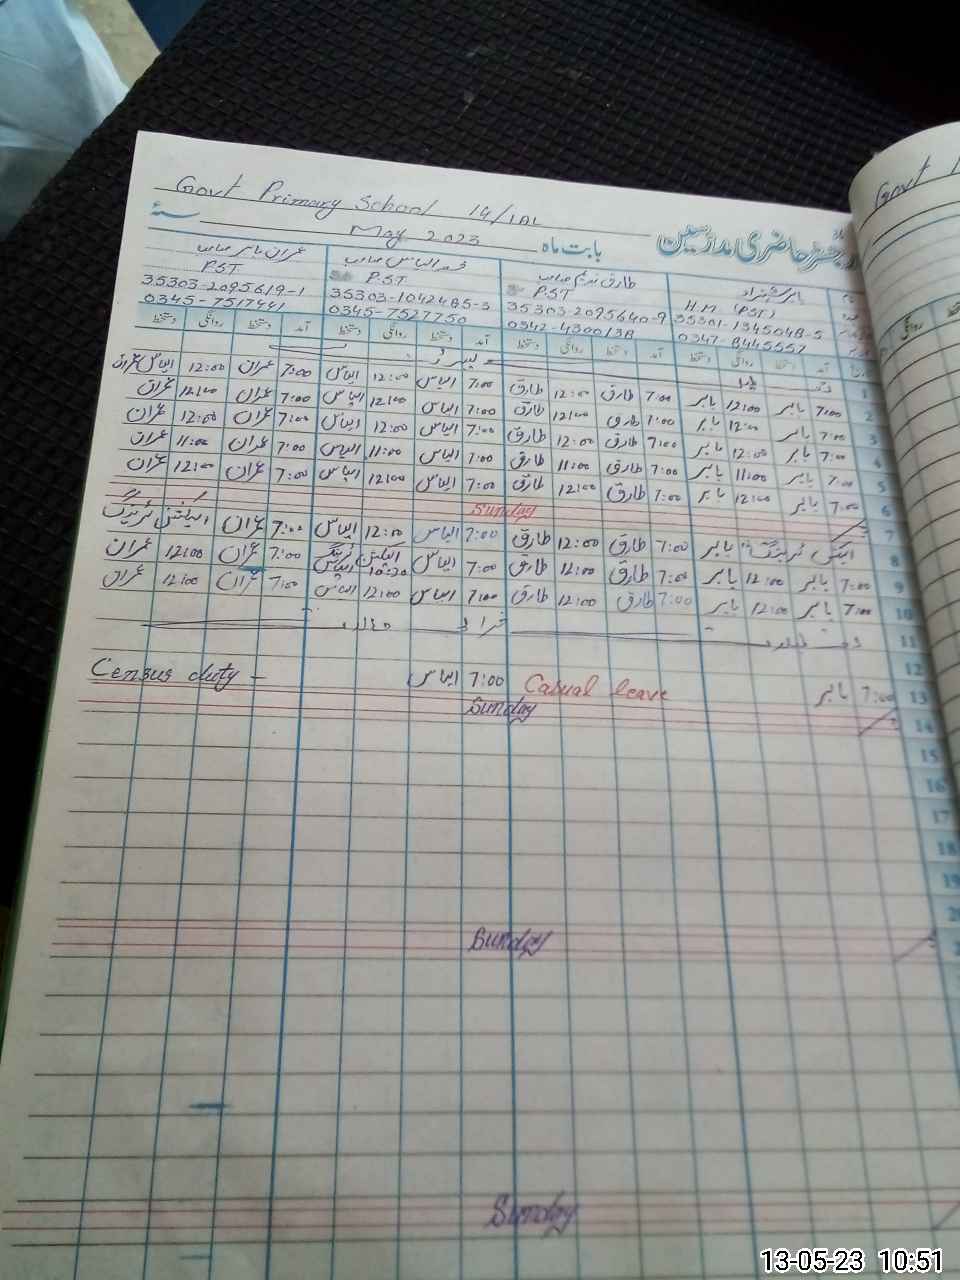 Govt Primary School 14/1AL
رجسٹر حاضری مدرسین بابت ماہ May 2023 سنۂ
طارق ندیم صاحب
PST PST PST H.M (PST)
35303-2095619-1 35303-1042485-3 35303-2095640-9 35301-1345048-5
0345-7517441 0345-7527750 0342-4300138 0347-8445557
آمد دستخط روانگی دستخط آمد دستخط روانگی دستخط آمد دستخط روانگی دستخط آمد دستخط روانگی دستخط
1
2 7:00 بابر 12:00 بابر 7:00 طارق 12:00 طارق 7:00 الیاس 12:00 الیاس 7:00 عمران 12:00 عمران
3 7:00 بابر 12:00 بابر 7:00 طارق 12:00 طارق 7:00 الیاس 12:00 الیاس 7:00 عمران 12:00 عمران
4 7:00 بابر 12:00 بابر 7:00 طارق 12:00 طارق 7:00 الیاس 12:00 الیاس 7:00 عمران 12:00 عمران
5 7:00 بابر 11:00 بابر 7:00 طارق 11:00 طارق 7:00 الیاس 11:00 الیاس 7:00 عمران 11:00 عمران
6 7:00 بابر 12:00 بابر 7:00 طارق 12:00 طارق 7:00 الیاس 12:00 الیاس 7:00 عمران 12:00 عمران
7 Sunday
8 الیکشن ٹریننگ بابر 7:00 طارق 12:00 طارق 7:00 الیاس 12:00 الیاس 7:00 عمران الیکشن ٹریننگ
9 7:00 بابر 12:00 بابر 7:00 طارق 12:00 طارق 7:00 الیاس الیکشن ٹریننگ 10:30 الیاس 7:00 عمران 12:00 عمران
10 7:00 بابر 12:00 بابر 7:00 طارق 12:00 طارق 7:00 الیاس 12:00 الیاس 7:00 عمران 12:00 عمران
11
12
13 7:00 بابر Casual leave 7:00 الیاس Census duty -
14 Sunday
15
16
17
18
19
20
Sunday
Sunday
Govt
13-05-23 10:51